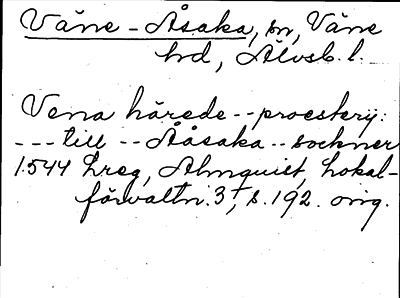 Väne-Åsaka, sn, Väne
hd, Älvsb. l.
Vena härede -- proesterij:
--- till -- Aåsaka -- sockner
1544 Lreg, Almquist, Lokal-
förvaltn. 3, s. 192. orig.